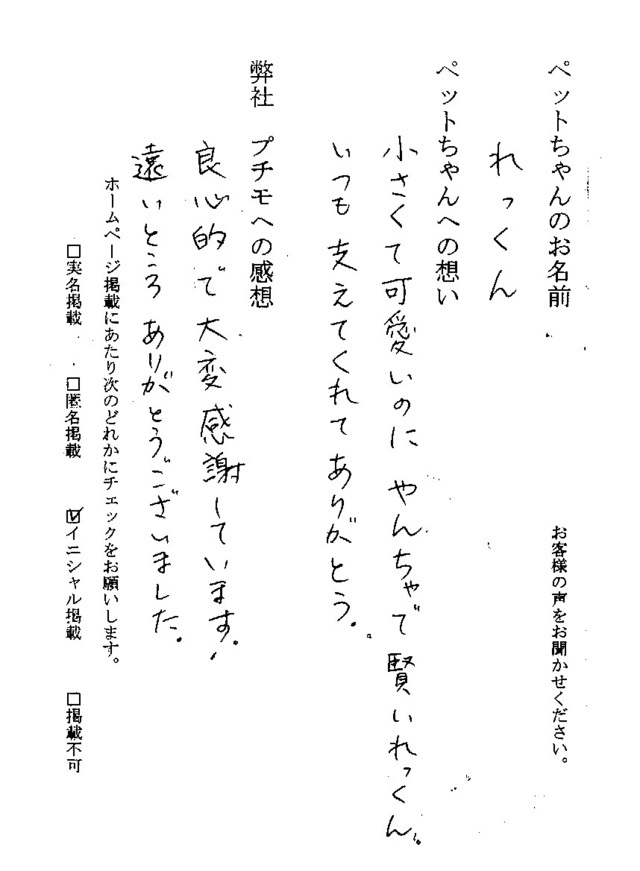 お客様の声をお聞かせください。
ペットちゃんのお名前
れっくん
ペットちゃんへの想い
小さくて可愛いのに やんちゃで賢いれっくん。
いつも支えてくれてありがとう。
弊社 プチモへの感想
良心的で大変感謝しています。
遠いところ ありがとうございました。
ホームページ掲載にあたり次のどれかにチェックをお願いします。
□実名掲載 □匿名掲載 ☑イニシャル掲載 □掲載不可